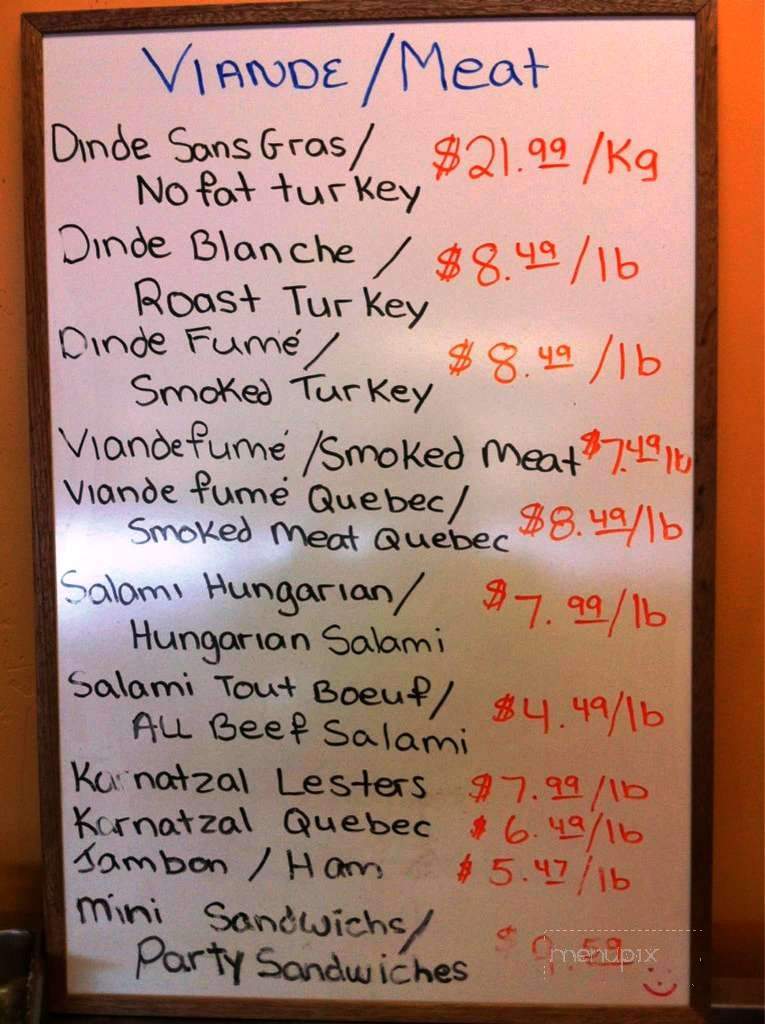 VIANDE/Meat
Dinde Sans Gras/ $21.99/Kg
No fat turkey
Dinde Blanche / $8.49/lb
Roast Turkey
Dinde Fumé/ $8.49/lb
Smoked Turkey
Viande fumé/Smoked Meat $7.49 lb
Viande fumé Quebec/ $8.49/lb
Smoked Meat Quebec
Salami Hungarian/ $7.99/lb
Hungarian Salami
Salami Tout Boeuf/ $4.49/lb
All Beef Salami
Karnatzal Lesters $7.99/lb
Karnatzal Quebec $6.49/lb
Jambon / Ham $5.47/lb
Mini Sandwichs/
Party Sandwiches
menupix